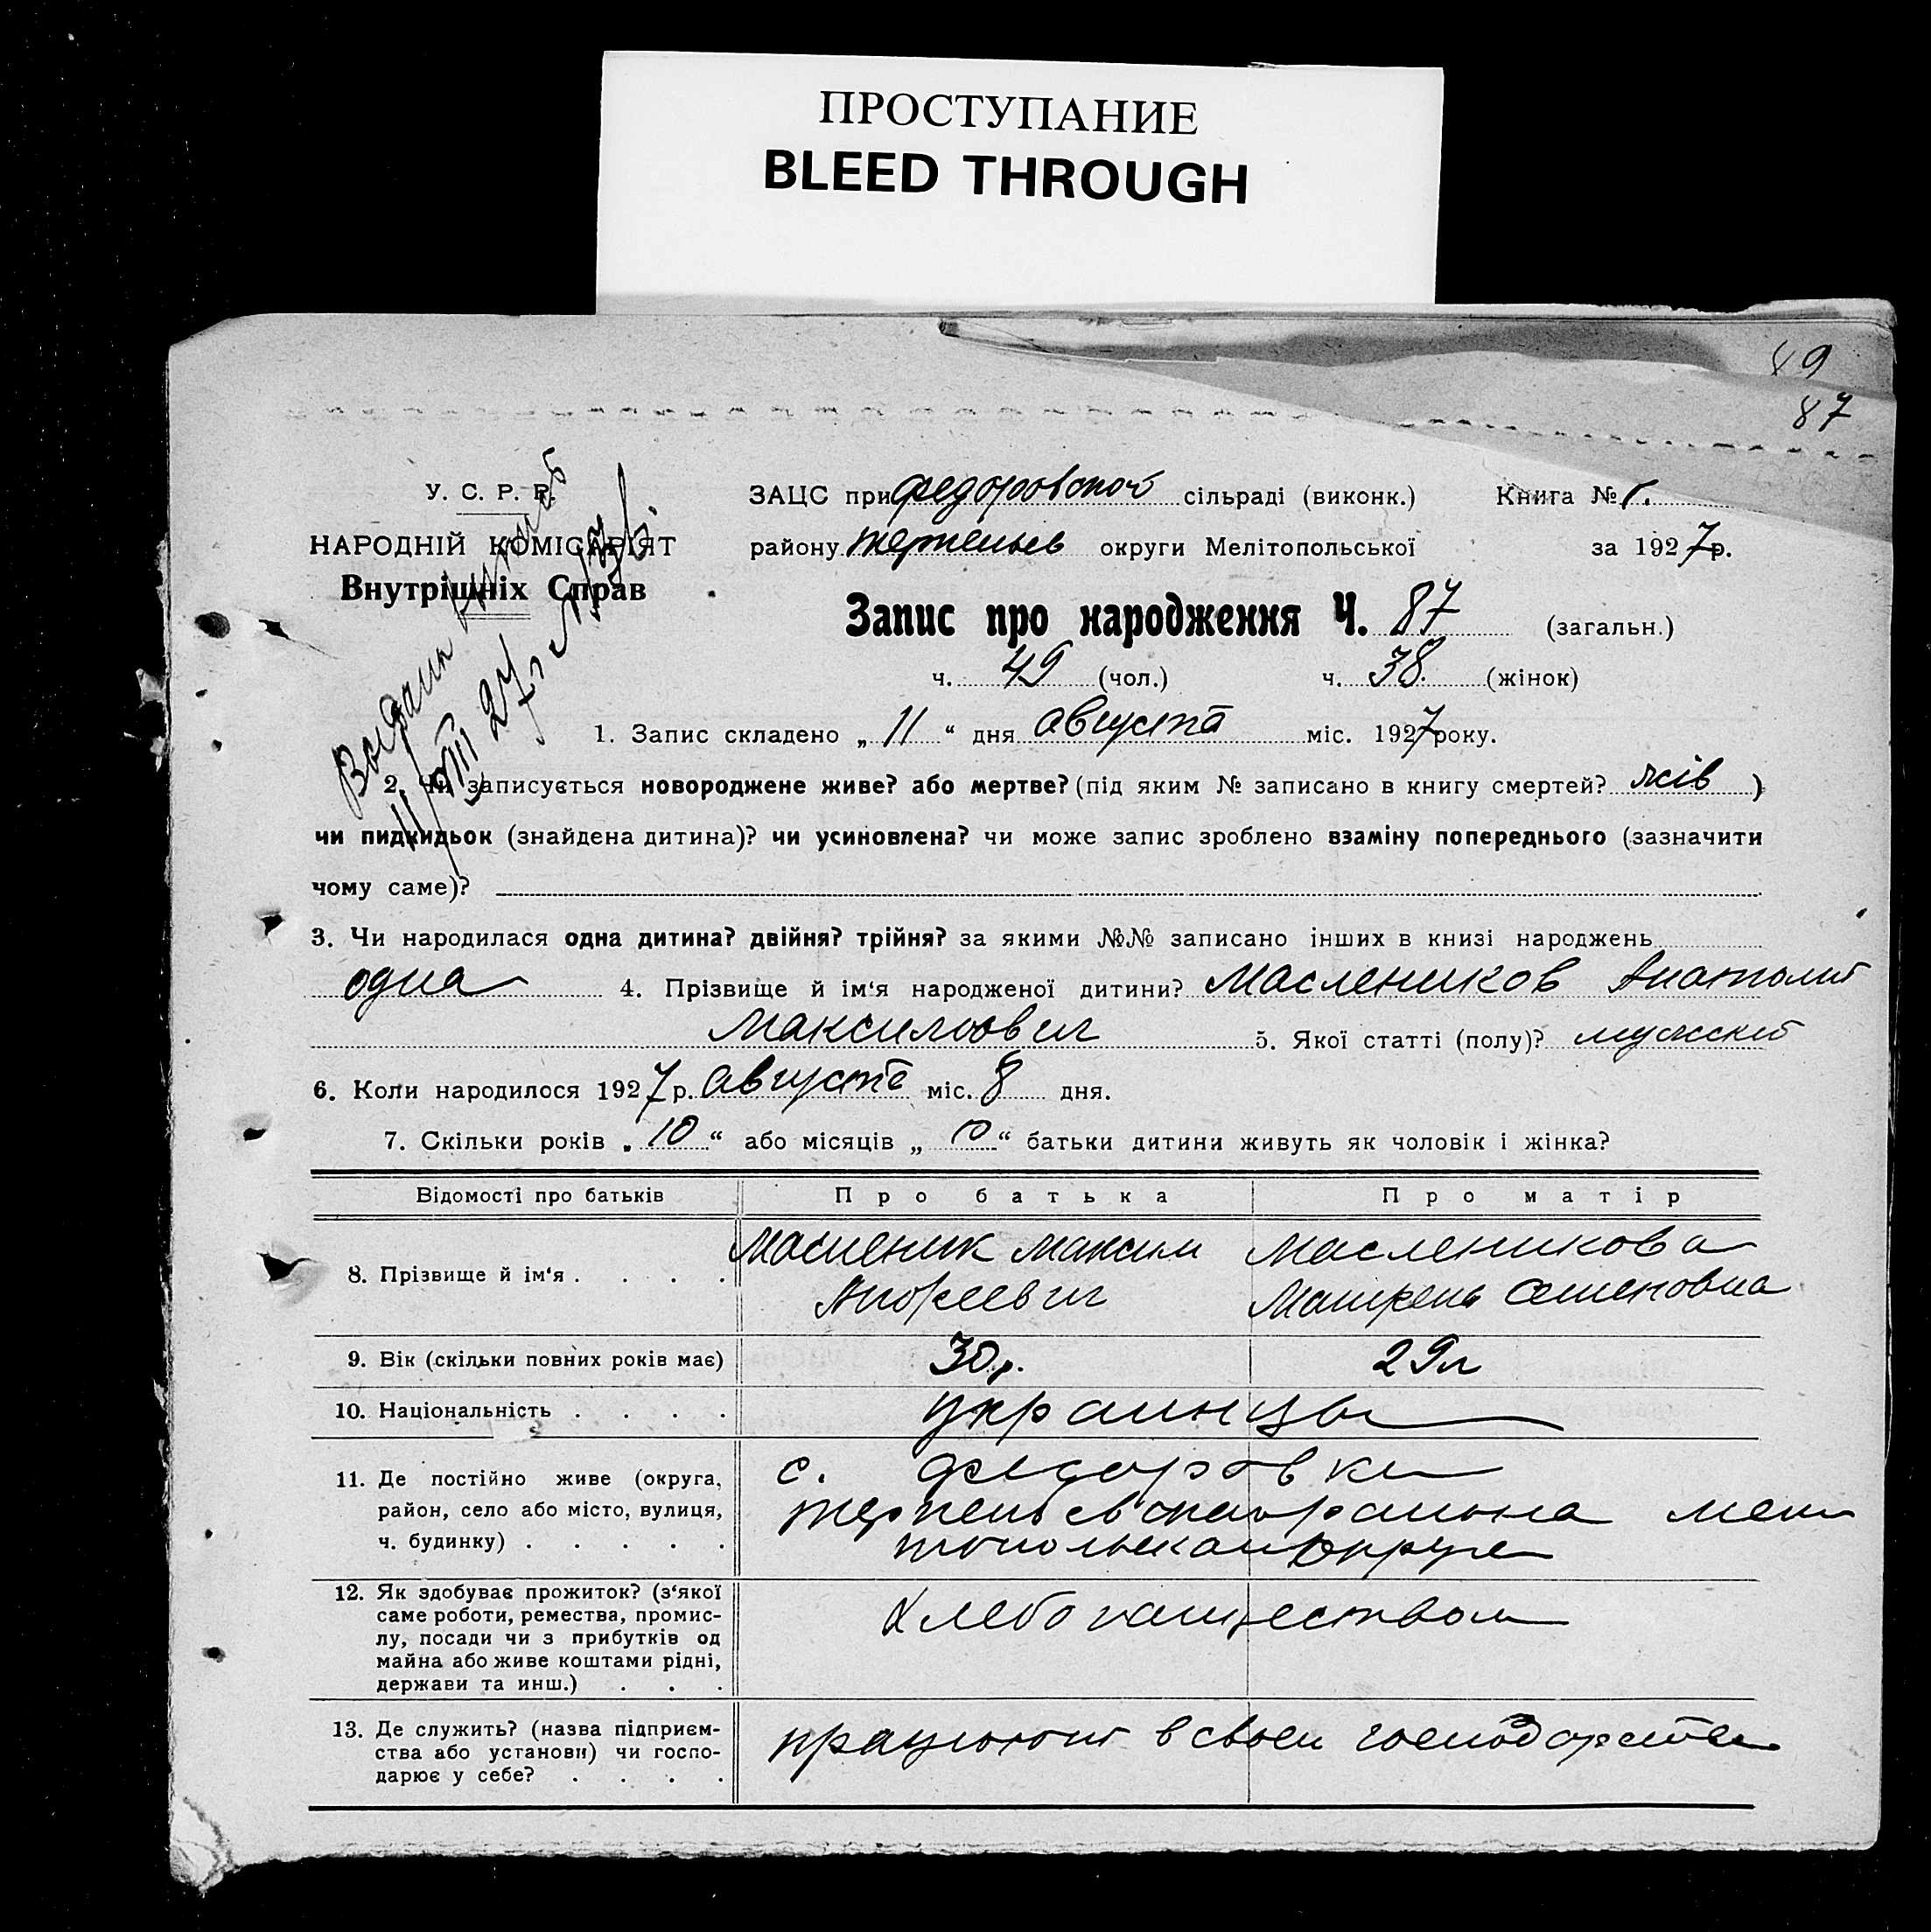 ПРОСТУПАНИЕ
BLEED THROUGH
89
87
У. С. Р. Р.
НАРОДНІЙ КОМІСАРІЯТ
Внутрішніх Справ
ЗАЦС при Федоровской сільраді (виконк.) Книга №
району округи Мелітопольської за 1927 р.
Запис про народження Ч. 87 (загальн.)
ч. 49 (чол.) ч. 38 (жінок)
1. Запис складено „ 11 “ дня августа міс. 1927 року.
2. Чи записується новороджене живе? або мертве? (під яким № записано в книгу смертей? )
чи пидкидьок (знайдена дитина)? чи усиновлена? чи може запис зроблено взаміну попереднього (зазначити
чому саме)?
3. Чи народилася одна дитина? двійня? трійня? за якими №№ записано інших в книзі народжень
одна 4. Прізвище й ім‘я народженої дитини? Маслеников Анатолий
Максимович 5. Якої статті (полу)? мужский
6. Коли народилося 1927 р. августа міс. 8 дня.
7. Скільки років „ 10 “ або місяців „ “ батьки дитини живуть як чоловік і жінка?
Відомості про батьків Про батька Про матір
8. Прізвище й ім‘я . . . . Масленик Максим Масленикова
Андреевич Семеновна
9. Вік (скільки повних років має) 30 р. 29 л
10. Національність . . . . украинцы
11. Де постійно живе (округа,
район, село або місто, вулиця,
ч. будинку) . . . . .
с. Федоровки
района Мели
топольской округи
12. Як здобуває прожиток? (з‘якої
саме роботи, ремества, промис-
лу, посади чи з прибутків од
майна або живе коштами рідні,
держави та инш.) . . .
Хлебопашеством
13. Де служить? (назва підприєм-
ства або установи) чи госпо-
дарює у себе? . . . .
працюют в своем